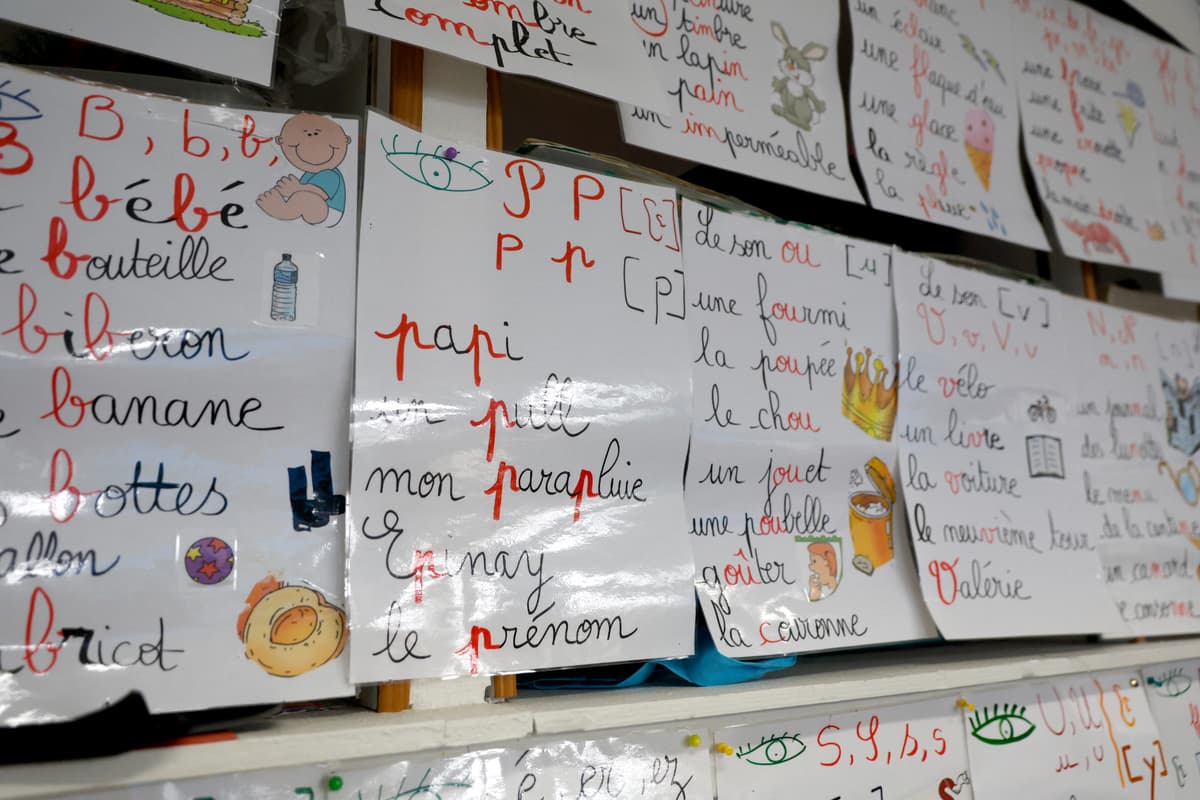 complet
un timbre
'n lapin
pain
un imperméable
un éclair
une flaque d'eau
une glace
la règle
la pluie
B, b, b,
bébé
bouteille
biberon
banane
bottes
allon
bricot
P P
P p
[p]
papi
un pull
mon parapluie
Epinay
le prénom
Le son ou [u]
une fourmi
la poupée
le chou
un jouet
une poubelle
goûter
la couronne
Le son [v]
V, v, V, v
le vélo
un livre
la voiture
le neuvième tour
Valérie
un journal
des lunettes
le menu
de la cantine
un canard
é, er, ez
S, S, s, s
U, U
u, u
[y]